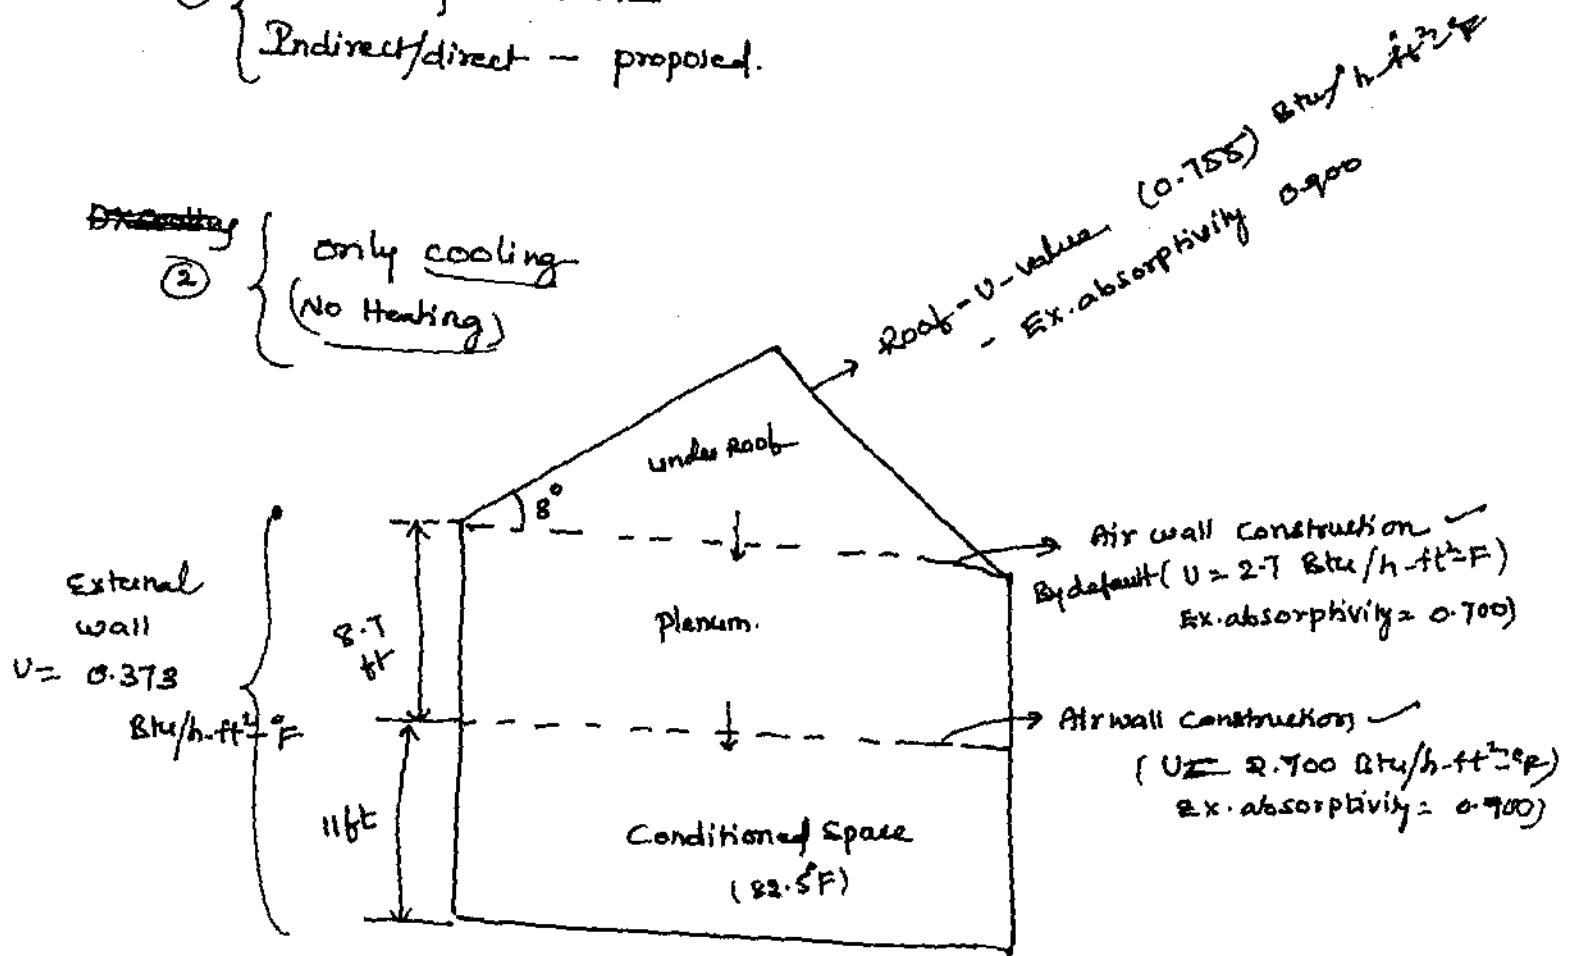 Indirect/direct - proposed.
②
only cooling
(No Heating)
Roof - U-value (0.755) Btu/h-ft²-°F
- Ex. absorptivity 0.900
under Roof
8°
Air wall Construction
By default (U = 2.7 Btu/h-ft²-F)
Ex. absorptivity = 0.700)
External
wall
U = 0.373
Btu/h-ft²-°F
8.7
ft
Plenum.
Air wall Construction
(U = 2.700 Btu/h-ft²-°F)
Ex. absorptivity =
11ft
Conditioned Space
(82.5°F)